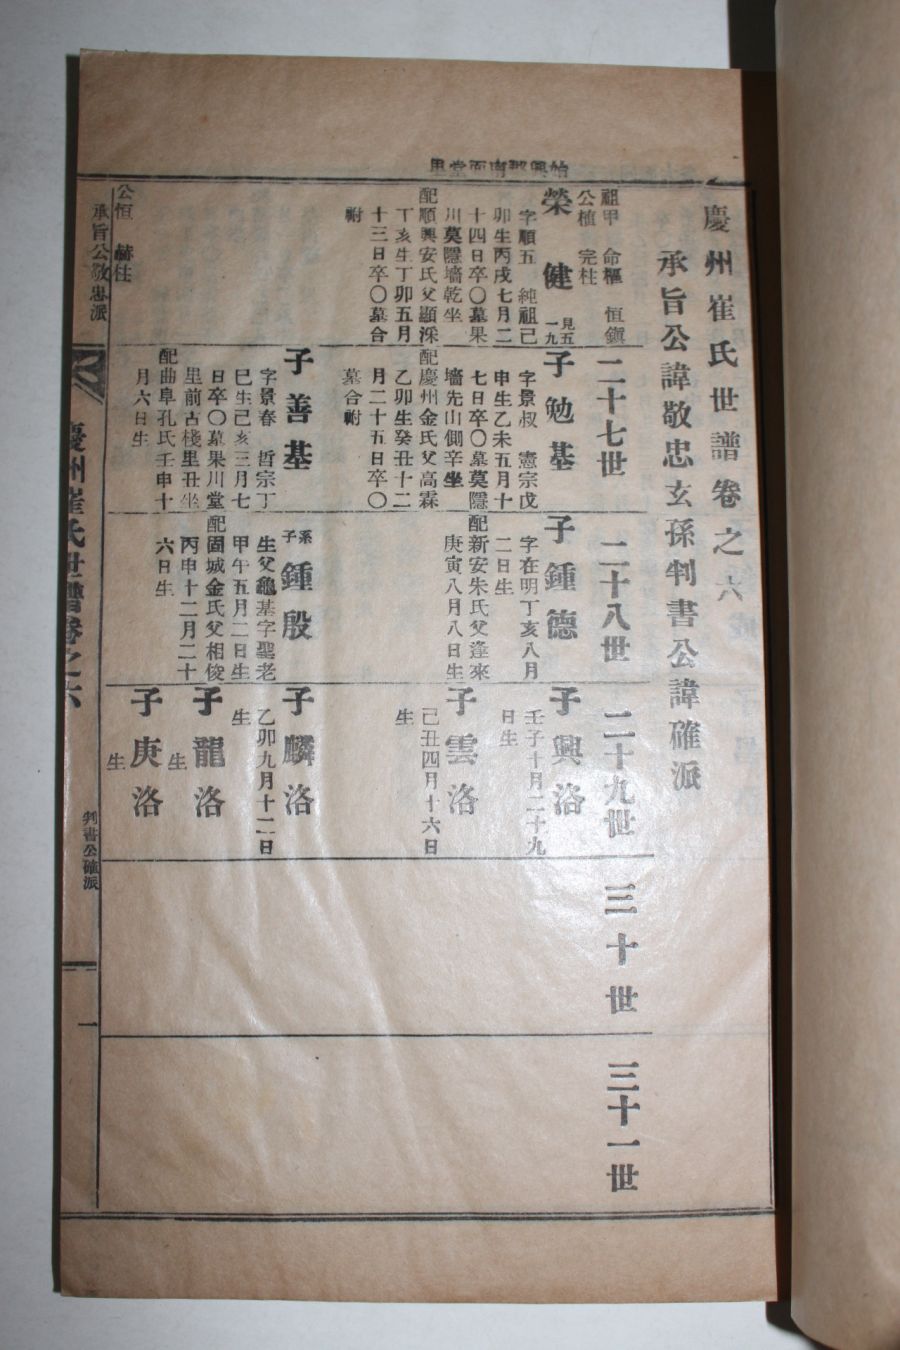 始興郡南面堂里
慶州崔氏世譜卷之六
承旨公諱敬忠玄孫判書公諱確派
祖甲 命樞 恒鎭
公植 完柱
榮健 見五一九
字順五 純祖己
卯生丙戌七月二
十四日卒〇墓果
川莫隱墻乾坐
配順興安氏父顯淶
丁亥生丁卯五月
十三日卒〇墓合
祔
公恒 赫柱
二十七世
子勉基
字景叔 憲宗戊
申生乙未五月十
七日卒〇墓莫隱
墻先山側辛坐
配慶州金氏父高霖
乙卯生癸丑十二
月二十五日卒〇
墓合祔
子善基
字景春 哲宗丁
巳生己亥三月七
日卒〇墓果川堂
里前古棧里丑坐
配曲阜孔氏壬申十
月六日生
二十八世
子鍾德
字在明丁亥八月
二日生
配新安朱氏父逢來
庚寅八月八日生
系子鍾殷
生父龜基字聖老
甲午五月二日生
配固城金氏父相俊
丙申十二月二十
六日生
二十九世
子興洛
壬子十月二十九
日生
子雲洛
己丑四月十六日
生
子麟洛
乙卯九月十二日
生
子龍洛
生
子庚洛
生
三十世
三十一世
承旨公敬忠派
慶州崔氏世譜卷之六
判書公確派
一